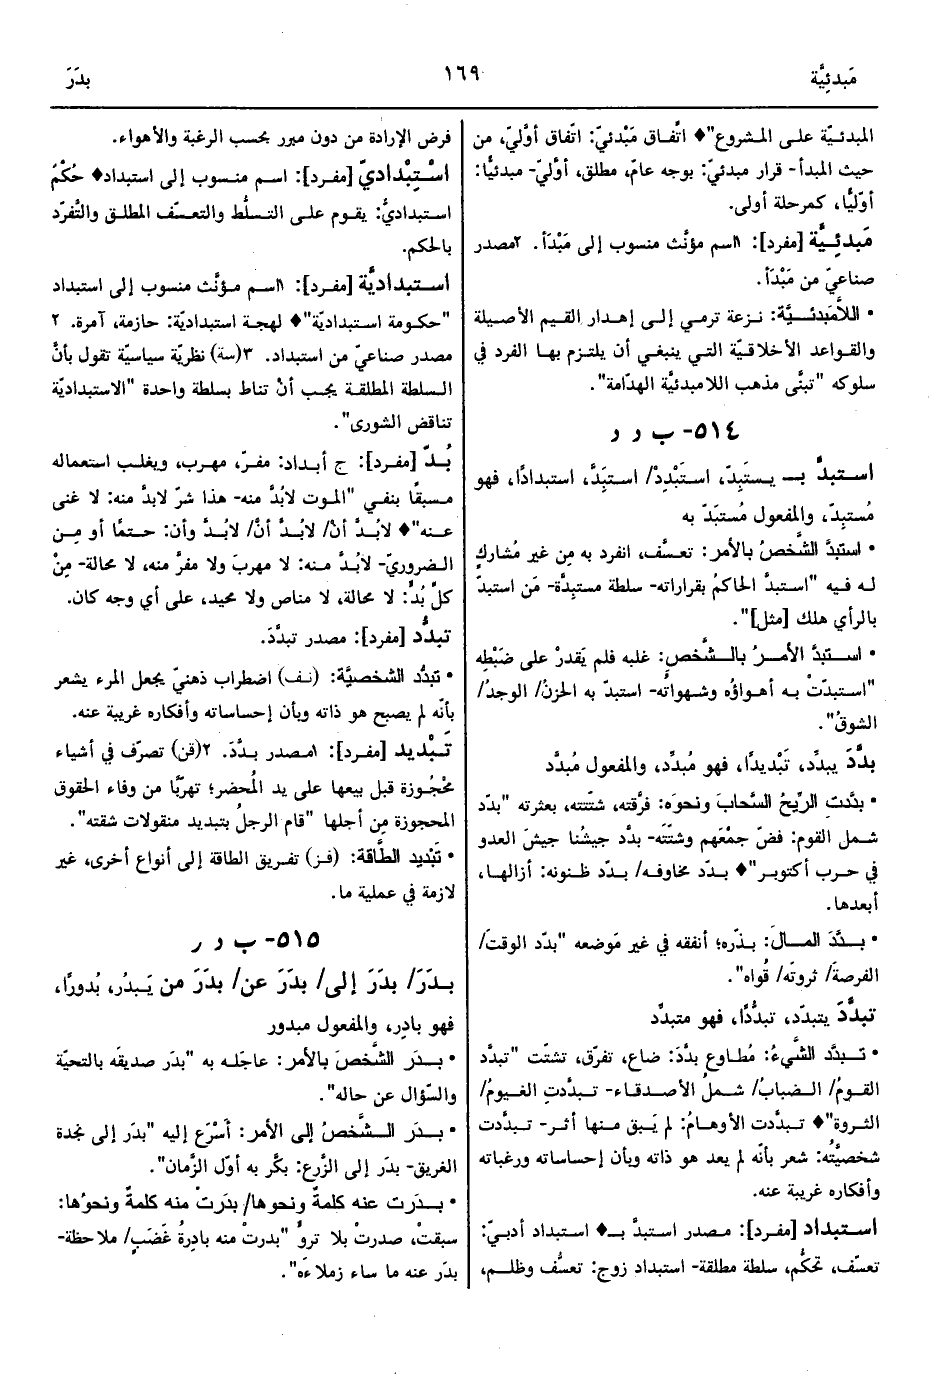 مَبدئيَّة
١٦٩
بدَرَ
المبدئيّة على المشروع"♦ اتِّفاق مَبْدئيّ: اتّفاق أوَّليّ، من
حيث المبدأ- قرار مبدئيّ: بوجه عامّ، مطلق، أوَّليّ- مبدئيًّا:
أوّليًّا، كمرحلة أولى.
مَبدئيَّة [مفرد]: ١اسم مؤنَّث منسوب إلى مَبْدَأ. ٢مصدر
صناعيّ من مَبْدَأ.
• اللاَّمَبْدَئيَّة: نزعة ترمي إلى إهدار القيم الأصيلة
والقواعد الأخلاقيّة التي ينبغي أن يلتزم بها الفرد في
سلوكه "تبنَّى مذهب اللامبدئيَّة الهدّامة".
٥١٤- ب د د
استبدَّ بـ يستبِدّ، استَبْدِدْ/ استبِدَّ، استبدادًا، فهو
مُستبِدّ، والمفعول مُستبَدّ به
• استبدَّ الشَّخصُ بالأمر: تعسَّف، انفرد به مِن غير مُشارِكٍ
له فيه "استبدَّ الحاكمُ بقراراته- سلطة مستبِدَّة- مَن استبدّ
بالرأي هلك [مثل]".
• استبدَّ الأمرُ بالشَّخصِ: غلبه فلم يَقدرْ على ضَبْطِه
"استبدّتْ به أهواؤه وشهواتُه- استبدّ به الحزنُ/ الوجدُ/
الشوقُ".
بدَّدَ يبدِّد، تَبْديدًا، فهو مُبدِّد، والمفعول مُبدَّد
• بدَّدتِ الرِّيحُ السَّحابَ ونحوَه: فرَّقته، شتَّتته، بعثرته "بدّد
شمل القوم: فضّ جمْعَهم وشتَّته- بدَّد جيشُنا جيشَ العدو
في حرب أكتوبر"♦ بدّد مخاوفه/ بدّد ظنونه: أزالها،
أبعدها.
• بدَّدَ المالَ: بذّره؛ أنفقه في غير مَوضعه "بدّد الوقتَ/
الفرصةَ/ ثروتَه/ قُواه".
تبدَّدَ يتبدّد، تبدُّدًا، فهو متبدِّد
• تبدَّد الشَّيءُ: مُطاوع بدَّدَ: ضاع، تفرّق، تشتّت "تبدَّد
القومُ/ الضبابُ/ شملُ الأصدقاء- تبدَّدتِ الغيومُ/
الثروة"♦ تبدَّدت الأوهامُ: لم يَبق منها أثر- تبدَّدت
شخصيَّتُه: شعر بأنّه لم يعد هو ذاته وبأن إحساساته ورغباته
وأفكاره غريبة عنه.
استبداد [مفرد]: مصدر استبدَّ بـ♦ استبداد أدبيّ:
تعسّف، تحكُّم، سلطة مطلقة- استبداد زوج: تعسُّف وظلم،
فرض الإرادة من دون مبرر بحسب الرغبة والأهواء.
اسْتِبْداديّ [مفرد]: اسم منسوب إلى استبداد♦ حُكْمٌ
استبداديٌّ: يقوم على التسلُّط والتعسّف المطلق والتَّفرّد
بالحكم.
استبداديَّة [مفرد]: ١اسم مؤنَّث منسوب إلى استبداد
"حكومة استبداديّة"♦ لهجة استبداديّة: حازمة، آمرة. ٢
مصدر صناعيّ من استبداد. ٣(سة) نظريّة سياسيّة تقول بأنَّ
السلطة المطلقة يجب أنْ تناط بسلطة واحدة "الاستبداديّة
تناقض الشورى".
بُدّ [مفرد]: ج أبداد: مفرّ، مهرب، ويغلب استعماله
مسبقًا بنفي "الموت لابُدَّ منه- هذا شرّ لابدَّ منه: لا غنى
عنه"♦ لابُدَّ أنْ/ لابُدَّ أنَّ/ لابُدَّ وأن: حتمًا أو مِن
الضروريّ- لابُدَّ منه: لا مهربَ ولا مفرَّ منه، لا محالة- مِنْ
كلِّ بُدٍّ: لا محالة، لا مناص ولا محيد، على أي وجه كان.
تبدُّد [مفرد]: مصدر تبدَّدَ.
• تبدُّد الشخصيَّة: (نف) اضطراب ذهنيّ يجعل المرء يشعر
بأنّه لم يصبح هو ذاته وبأن إحساساته وأفكاره غريبة عنه.
تَبْديد [مفرد]: ١مصدر بدَّدَ. ٢(قن) تصرّف في أشياء
مَحْجُوزة قبل بيعها على يد المُحضر؛ تهرُّبًا من وفاء الحقوق
المحجوزة مِن أجلها "قام الرجلُ بتبديد منقولات شقته".
• تَبْديد الطَّاقة: (فز) تفريق الطاقة إلى أنواع أخرى، غير
لازمة في عملية ما.
٥١٥- ب د ر
بدَرَ/ بدَرَ إلى/ بدَرَ عن/ بدَرَ من يَبدُر، بُدورًا،
فهو بادِر، والمفعول مبدور
• بدَر الشَّخصَ بالأمر: عاجَله به "بدَر صديقَه بالتحيّة
والسّؤال عن حاله".
• بدَر الشَّخصُ إلى الأمر: أسْرَع إليه "بدَر إلى نجدة
الغريق- بدَر إلى الزَّرع: بكَّر به أوّل الزَّمان".
• بدَرت عنه كلمةٌ ونحوها/ بدَرتْ منه كلمةٌ ونحوُها:
سبقتْ، صدرتْ بلا تروٍّ "بدرتْ منه بادِرةُ غَضَبٍ/ ملاحظة-
بدَر عنه ما ساء زملاءَه".